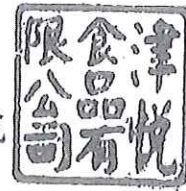 津悦
食品有
限公司